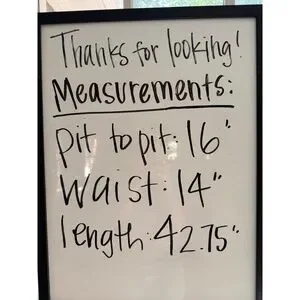 Thanks for looking!
Measurements:
pit to pit: 16'
waist: 14"
length: 42.75"